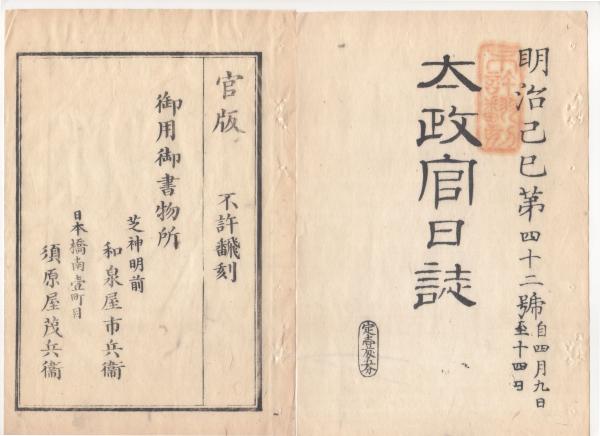 明治己巳第四十二號自四月九日至十四日
太政官日誌
不許翻刻
官版 不許飜刻
御用御書物所
芝神明前
和泉屋市兵衞
日本橋南壹町目
須原屋茂兵衞